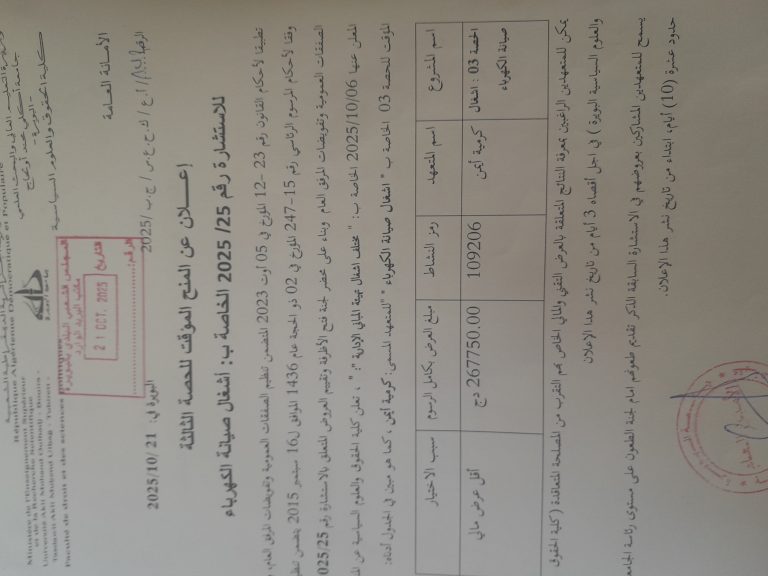 République Algérienne Démocratique et Populaire
Ministère de l'Enseignement Supérieur
et de la Recherche Scientifique
Université Akli Mohand Oulhadj - Bouira -
Tasdawit Akli Muḥend Ulḥağ - Tubirett -
Faculté de droit et des sciences
جامعة أكلي محند أولحاج
- البويرة -
كلية الحقوق والعلوم السياسية
الأمانة العامة
المجلس الشعبي البلدي بالبويرة
مكتب البريد الوارد
التاريخ
21 OCT. 2025
الرقم
/أ.ع / ك.ح.ع.س / ج.ب /2025
البويرة في: 2025/10/21
إعــلان عن المنح الموقت للحصة الثالثة
للاستشارة رقم 25/ 2025 الخاصة ب: أشغال صيانة الكهرباء
تطبيقا لأحكام القانون رقم 23 -12 المؤرخ في 05 أوت 2023 المتضمن تنظيم الصفقات العمومية وتفويضات المرفق العام،
وفقا لأحكام المرسوم الرئاسي رقم 15-247 المؤرخ في 02 ذو الحجة عام 1436 الموافق ل16 سبتمبر 2015 يتضمن
الصفقات العمومية وتفويضات المرفق العام وبناء على محضر لجنة فتح الأظرفة وتقييم العروض المتعلق بالاستشارة رقم 025/25
المعلن عنها 2025/10/06 الخاصة ب: " مختلف اشغال تهيئة المباني الإدارية "، تعلن كلية الحقوق والعلوم السياسية عن
الموقت للحصة 03 الخاصة ب " اشغال صيانة الكهرباء " للمتعهد المسمى: كرمية أيمن ، كما هو مبين في الجدول أدناه:
اسم المشروع اسم المتعهد رمز النشاط مبلغ العرض بكامل الرسوم سبب الاختيار
الحصة 03 : اشغال صيانة الكهرباء كرمية أيمن 109206 267750.00 دج أقل عرض مالي
يمكن للمتعهدين الراغبين بمعرفة النتائج المتعلقة بالعرض التقني والمالي الخاص بهم التقرب من المصلحة المتعاقدة ( كلية الحقوق
والعلوم السياسية البويرة ) في اجل أقصاه 3 أيام من تاريخ نشر هذا الإعلان
يسمح للمتعهدين المشاركين بعروضهم في الاستشارة السابقة الذكر تقديم طعونهم امام لجنة الطعون على مستوى رئاسة
حدود عشرة (10) أيام، ابتداء من تاريخ نشر هذا الإعلان.